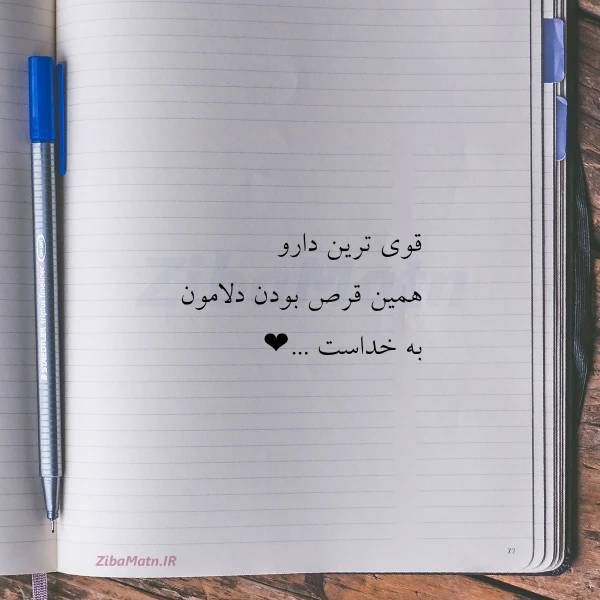 قوی ترین دارو
همین قرص بودن دلامون
به خداست ...❤
ZibaMatn
ZibaMatn.IR